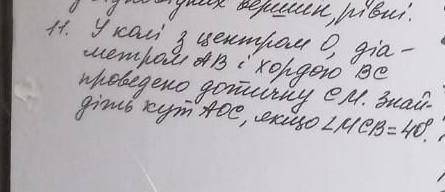 відповідних вершин, рівні.
11. У колі з центром О, діа-
метром АВ і хордою ВС
проведено дотичну СМ. Знай-
діть кут АОС, якщо ∠МСВ=40°.